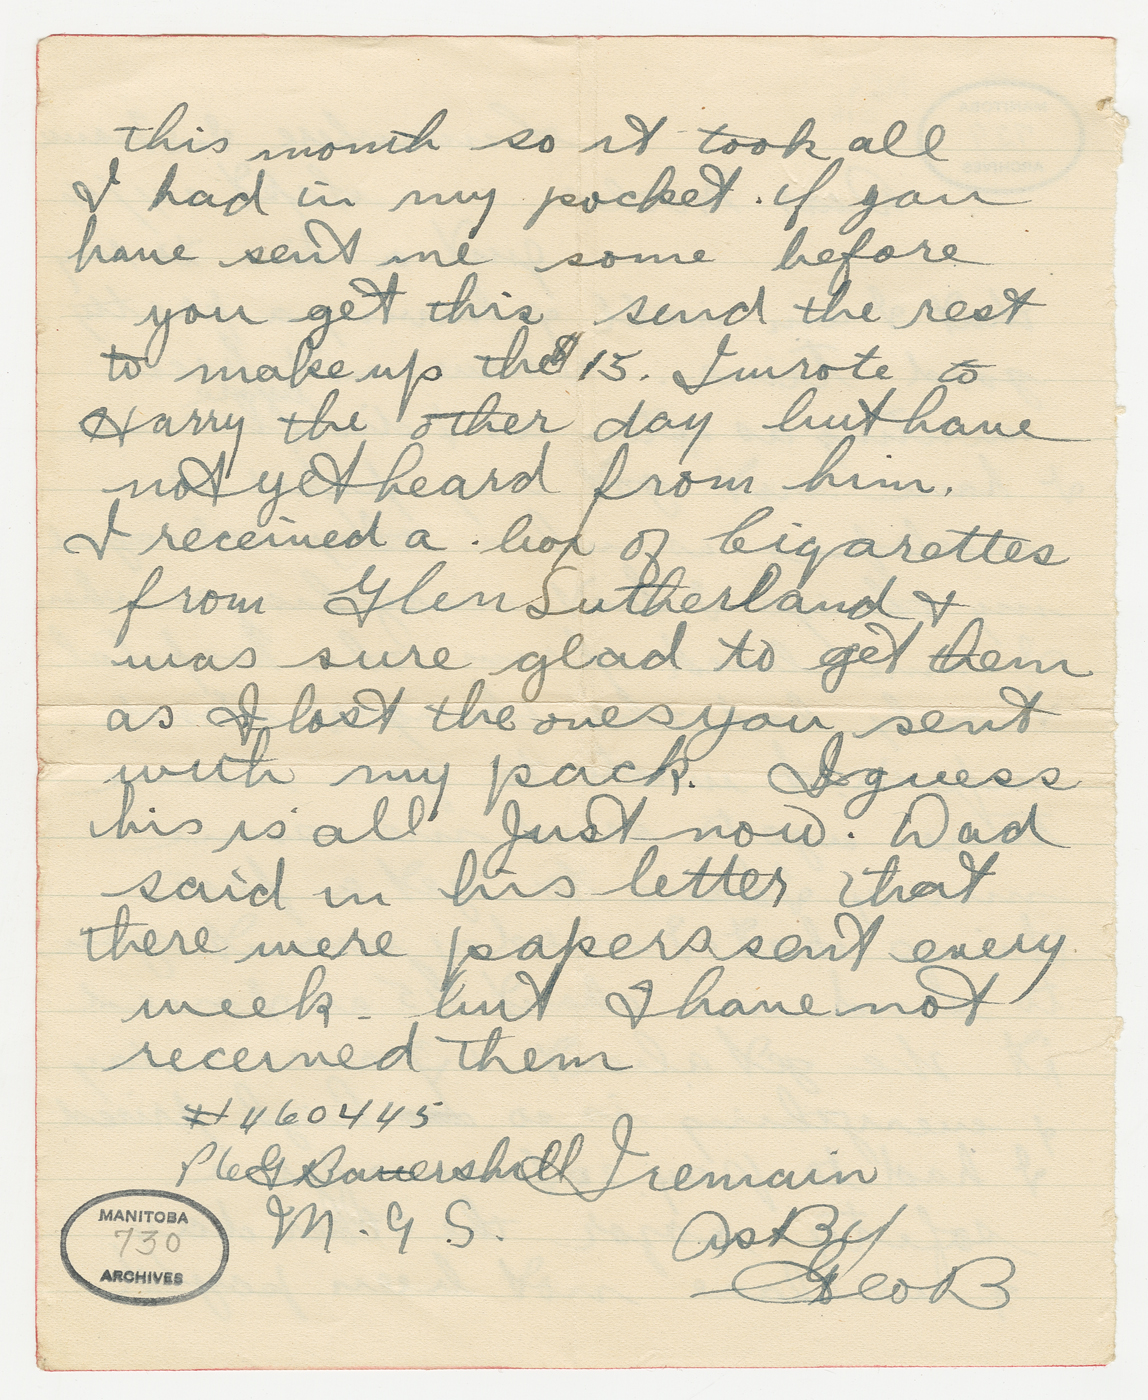 this month so it took all
I had in my pocket. if you
have sent me some before
you get this send the rest
to make up the $15. I wrote to
Harry the other day but have
not yet heard from him.
I received a box of Cigarettes
from Glen Sutherland &
was sure glad to get them
as I lost the ones you sent
with my pack. I guess
his is all Just now. Dad
said in his letter that
there were papers sent every
week - but I have not
received them
#460445
Pte G Battershill I remain
M.G.S.
As By
Geo B
MANITOBA
730
ARCHIVES